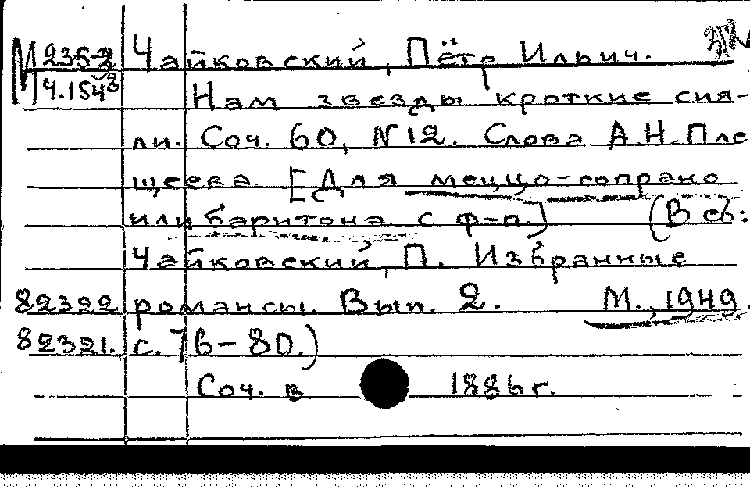 М 235-2 Чайковский, Пётр Ильич.
Ч.154 Нам звезды кроткие сия-
ли. Соч. 60, N12. Слова А.Н.Пле
щеева. [Для меццо-сопрано
или баритона с ф-п.] (В сб:
Чайковский, П. Избранные
82322 романсы. Вып. 2. М., 1949.
82321. с. 76-80.)
Соч. в 1886 г.